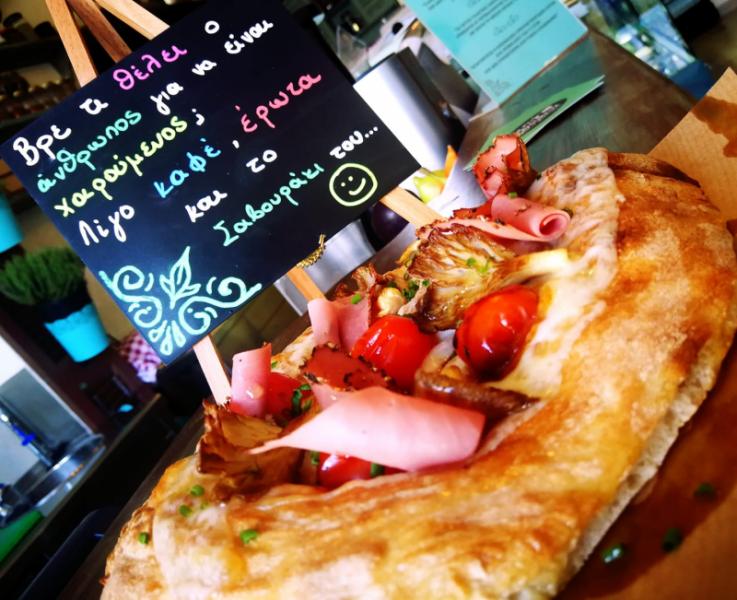 Βρε τι θέλει ο
άνθρωπος για να είναι
χαρούμενος;
λίγο καφέ, έρωτα
και το
Σαβουράκι του...